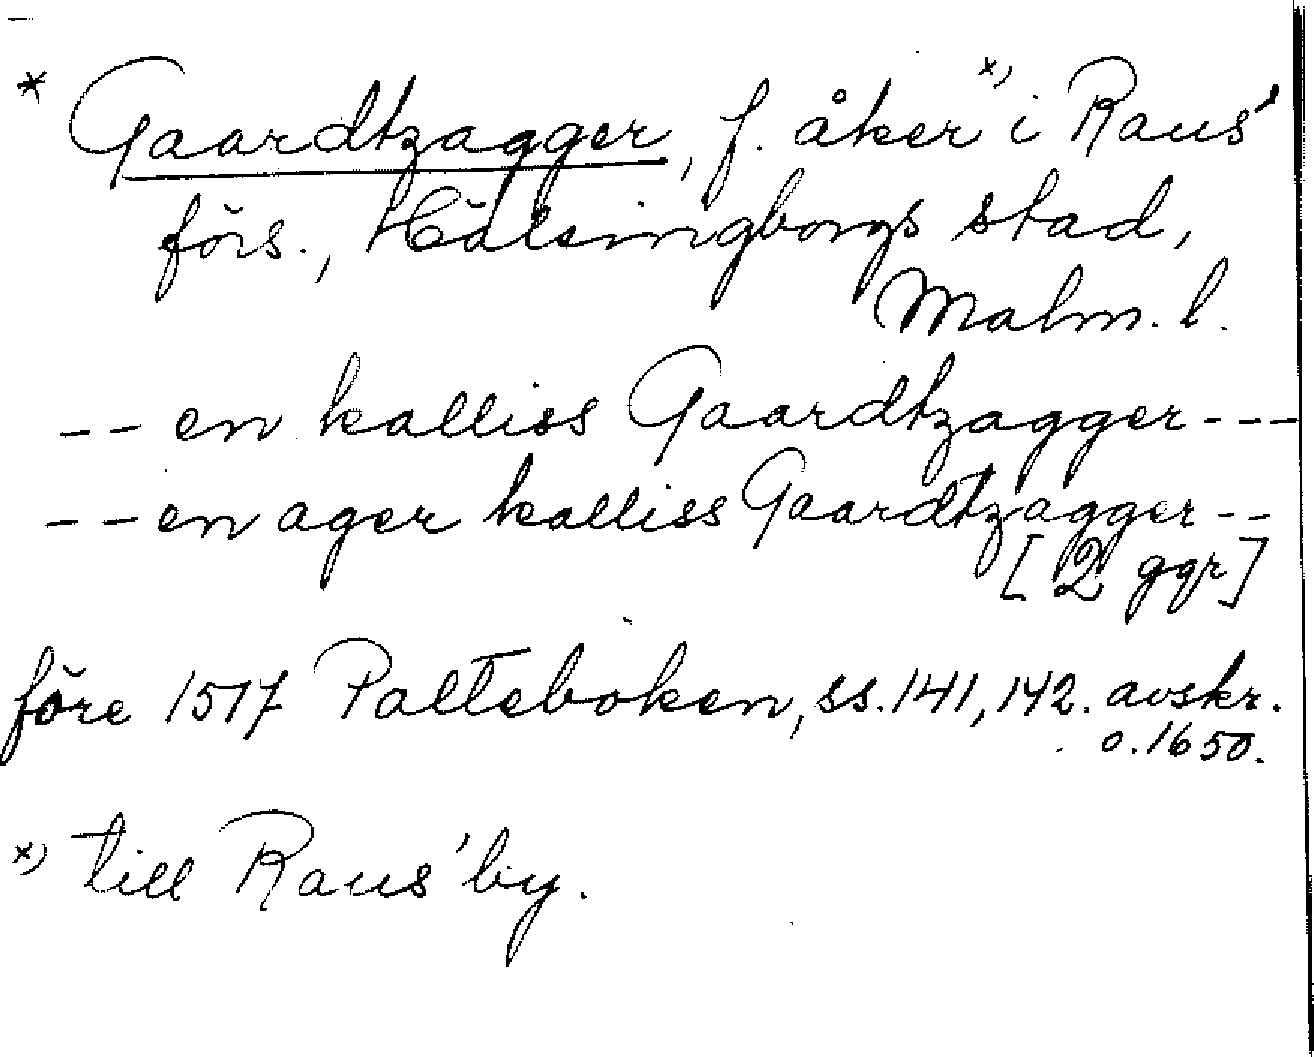 * Gaardtzagger, f. åker x) i Raus'
förs., Hälsingborgs stad,
Malm. l.
-- en kalliss Gaardtzagger ---
-- en ager kalliss Gaardtzagger --
[2 ggr]
före 1517 Palteboken, ss. 141, 142. avskr.
o. 1650.
x) till Raus' by.